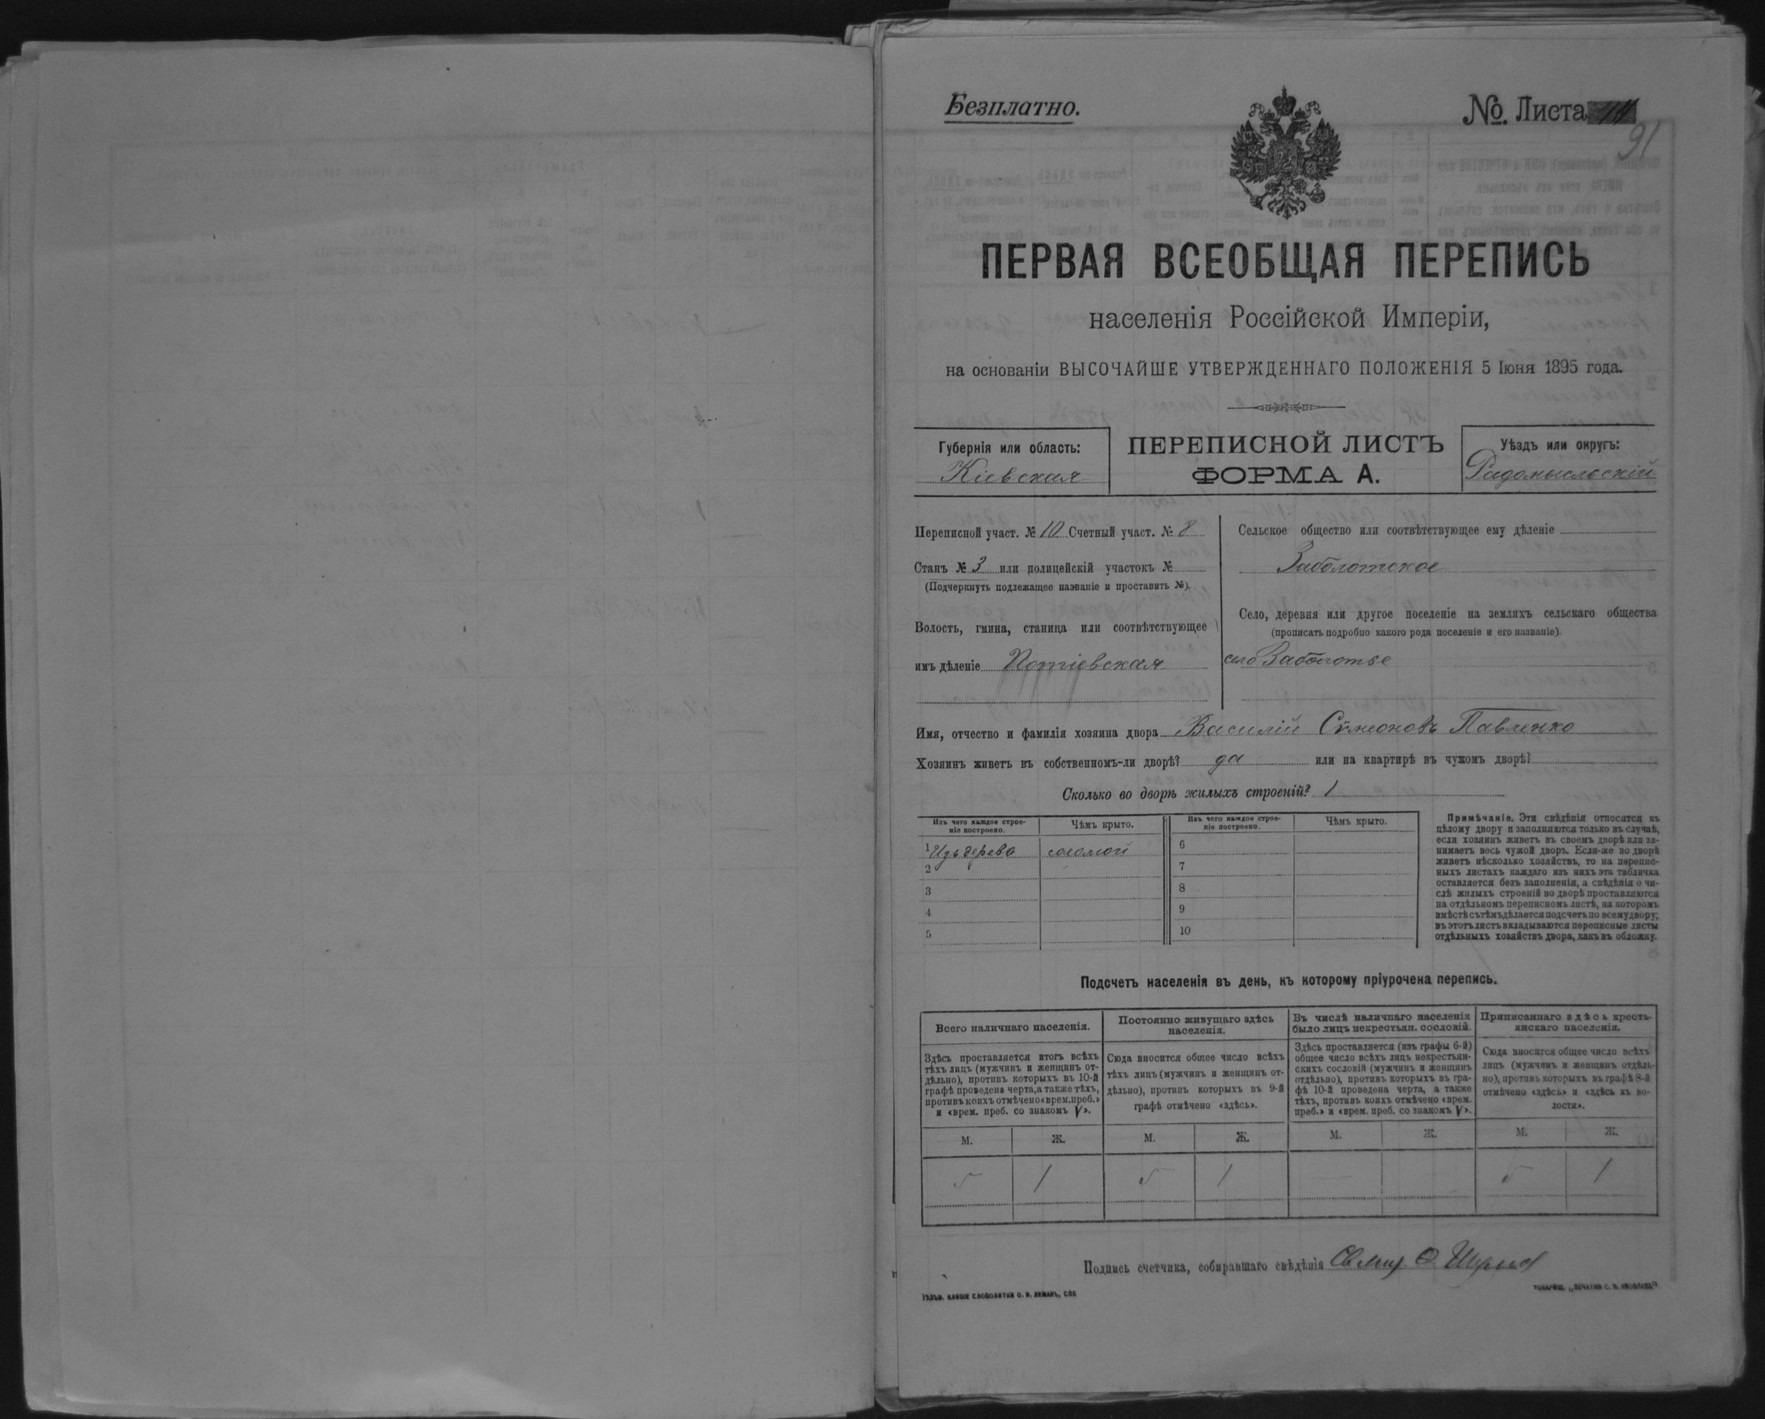 Безплатно.
№ Листа
91
ПЕРВАЯ ВСЕОБЩАЯ ПЕРЕПИСЬ
населенія Россійской Имперіи,
на основаніи ВЫСОЧАЙШЕ УТВЕРЖДЕННАГО ПОЛОЖЕНІЯ 5 Іюня 1895 года.
Губернія или область:
Кіевская
ПЕРЕПИСНОЙ ЛИСТЪ
ФОРМА А.
Уѣздъ или округъ:
Радомысльскій
Переписной участ. № 10 Счетный участ. № 8
Станъ № 3 или полицейскій участокъ №
(Подчеркнуть подлежащее названіе и проставить №).
Волость, гмина, станица или соотвѣтствующее
имъ дѣленіе Потіевская
Сельское общество или соотвѣтствующее ему дѣленіе
Заболотское
Село, деревня или другое поселеніе на земляхъ сельскаго общества
(прописать подробно какого рода поселеніе и его названіе)
село Заболотье
Имя, отчество и фамилія хозяина двора Василій Симеоновъ Павленко
Хозяинъ живетъ въ собственномъ-ли дворѣ? да или на квартирѣ въ чужомъ дворѣ?
Сколько во дворѣ жилыхъ строеній? 1
Изъ чего каждое строе-
ніе построено.
Чѣмъ крыто.
Изъ чего каждое строе-
ніе построено.
Чѣмъ крыто.
1 Изъ дерева соломой
2
3
4
5
6
7
8
9
10
Примѣчаніе. Эти свѣдѣнія относятся къ
цѣлому двору и заполняются только въ случаѣ,
если хозяинъ живетъ въ своемъ дворѣ или за-
нимаетъ весь чужой дворъ. Если-же во дворѣ
живетъ нѣсколько хозяйствъ, то на перепис-
ныхъ листахъ каждаго изъ нихъ эта табличка
оставляется безъ заполненія, а свѣдѣнія о чи-
слѣ жилыхъ строеній во дворѣ проставляются
на отдѣльномъ переписномъ листѣ, на которомъ
вмѣстѣ съ тѣмъ дѣлается подсчетъ по всему двору;
въ этотъ листъ вкладываются переписные листы
отдѣльныхъ хозяйствъ двора, какъ въ обложку.
Подсчетъ населенія въ день, къ которому пріурочена перепись.
Всего наличнаго населенія.
Здѣсь проставляется итогъ всѣхъ
тѣхъ лицъ (мужчинъ и женщинъ от-
дѣльно), противъ которыхъ въ 10-й
графѣ проведена черта, а также тѣхъ,
противъ коихъ отмѣчено «врем. преб.»
и «врем. преб. со знакомъ V».
Постоянно живущаго здѣсь
населенія.
Сюда вносится общее число всѣхъ
тѣхъ лицъ (мужчинъ и женщинъ от-
дѣльно), противъ которыхъ въ 9-й
графѣ отмѣчено «здѣсь».
Въ числѣ наличнаго населенія
было лицъ некрестьян. сословій.
Здѣсь проставляется (изъ графы 6-й)
общее число всѣхъ лицъ некрестьян-
скихъ сословій (мужчинъ и женщинъ
отдѣльно), противъ которыхъ въ гра-
фѣ 10-й проведена черта, а также
тѣхъ, противъ коихъ отмѣчено «врем.
преб.» и «врем. преб. со знакомъ V».
Приписаннаго здѣсь кресть-
янскаго населенія.
Сюда вносится общее число всѣхъ
лицъ (мужчинъ и женщинъ отдѣль-
но), противъ которыхъ въ графѣ 8-й
отмѣчено «здѣсь» и «здѣсь въ во-
лости».
М. Ж. М. Ж. М. Ж. М. Ж.
5 1 5 1 5 1
Подпись счетчика, собиравшаго свѣдѣнія